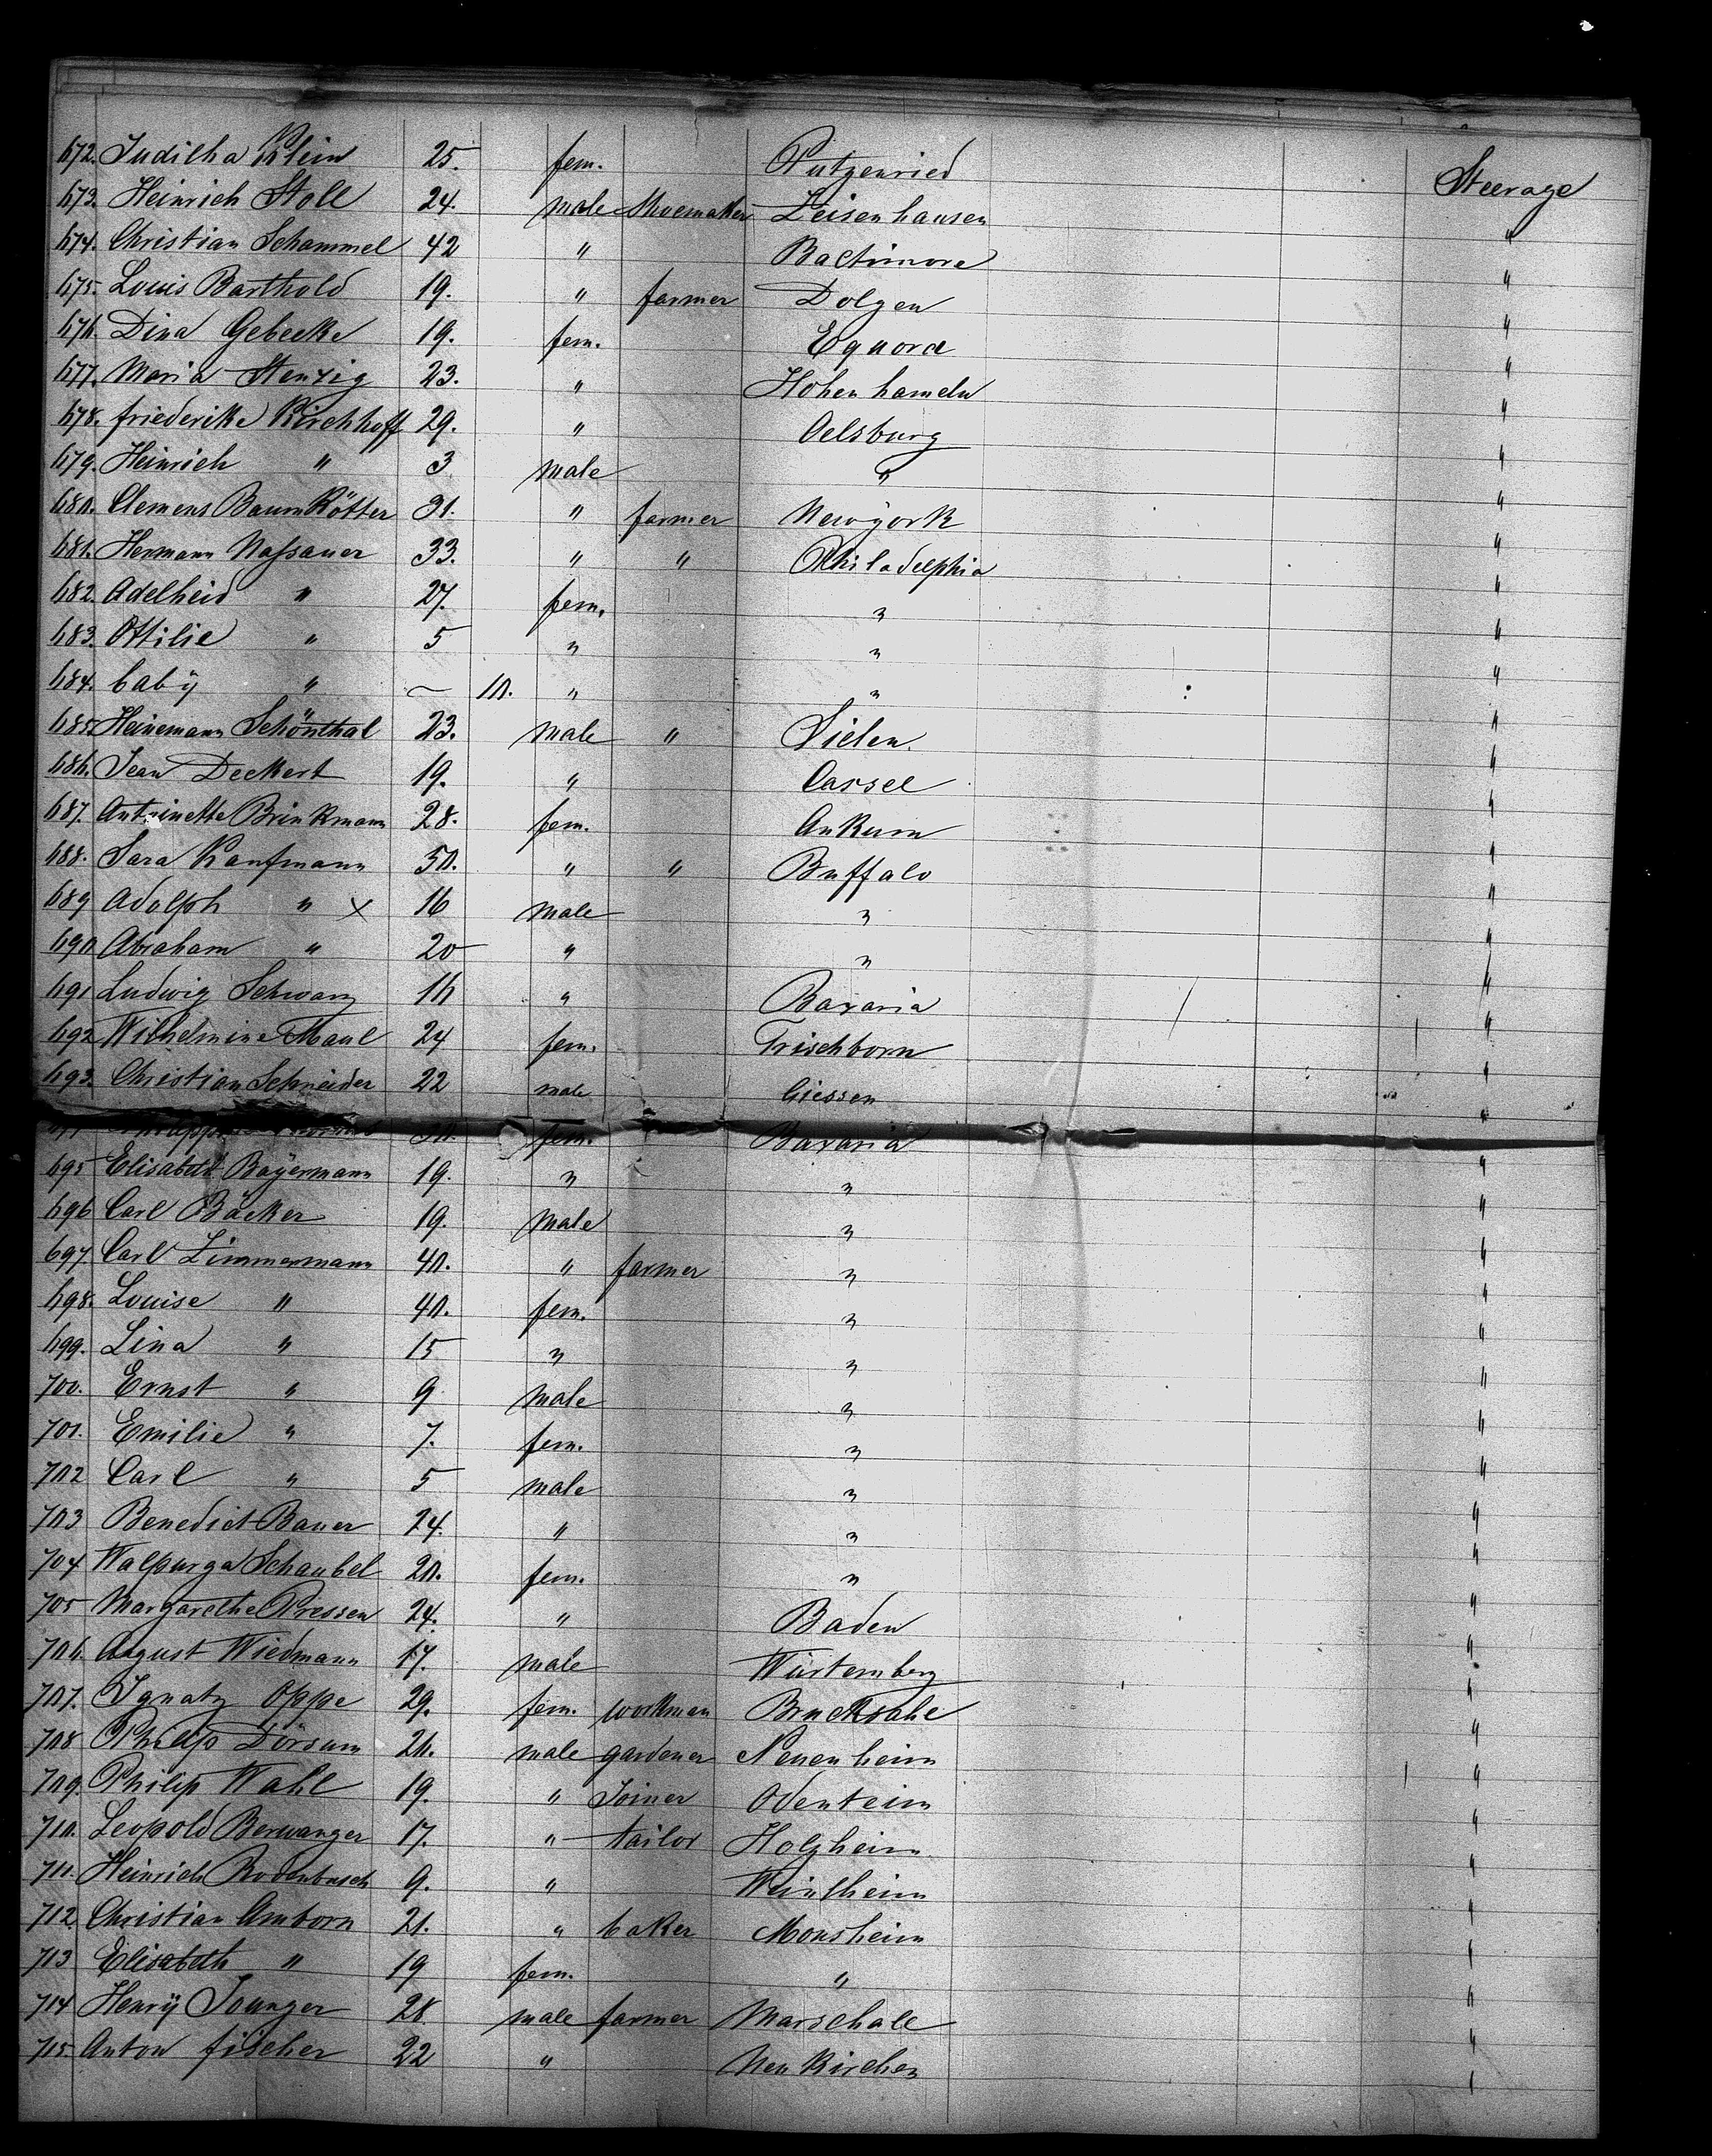 672. Juditha Klein 25. fem. Putzenried Steerage
673. Heinrich Stoll 24. male Shoemaker Leisenhausen "
674. Christian Schammel 42 " Baltimore "
675. Louis Barthold 19. " farmer Dolgen "
676. Dina Gebecke 19. fem. Equord "
677. Maria Stenzig 23. " Hohenhameln "
678. friederike Kirchhoff 29. " Oelsburg "
679. Heinrich " 3 male " "
680. Clemens Baumkötter 31. " farmer Newÿork "
681. Hermann Naßauer 33. " " Philadelphia "
682. Adelheid " 27. fem. " "
683. Ottilie " 5 " " "
684. babÿ " — 10. " " "
685. Heinemann Schönthal 23. male " Sielen. "
686. Jean Deckert 19. " Cassel "
687. Antoinette Brinkmann 28. fem. Ankum "
688. Sara Kaufmann 50. " " Buffalo "
689 Adolph " x 16 male " "
690 Abraham " 20 " " "
691 Ludwig Schwarz 16 " Bavaria "
692 Wilhelmine Maul 24 fem. Frischborn "
693. Christian Schneider 22 male Giessen "
fem. Bavaria "
695 Elisabeth Bayermann 19. " " "
696 Carl Bäcker 19. male " "
697. Carl Zimmermann 40. " farmer " "
698. Louise " 40. fem. " "
699. Lina " 15 " " "
700. Ernst " 9 male " "
701. Emilie " 7. fem. " "
702 Carl " 5 male " "
703 Benedict Bauer 24. " " "
704 Walpurga Schaubel 20. fem. " "
705 Margarethe Pressen 24. " Baden "
706. August Wiedmann 17. male Würtemberg "
707. Ignatz Oppe 29. fem. workman Brucksahl "
708 Philip Dörsum 20. male gardener Neuenheim "
709. Philip Wahl 19. " Joiner Odenteim "
710. Leopold Berwanger 17. " tailor Holzheim "
711. Heinrich Bodenbusch 9. " Weinheim "
712. Christian Amborn 21. " baker Monsheim "
713 Elisabeth " 19 fem. " "
714 Henrÿ Jounger 28. male farmer Marschall "
715. Anton fischer 22 " Neukirchen "